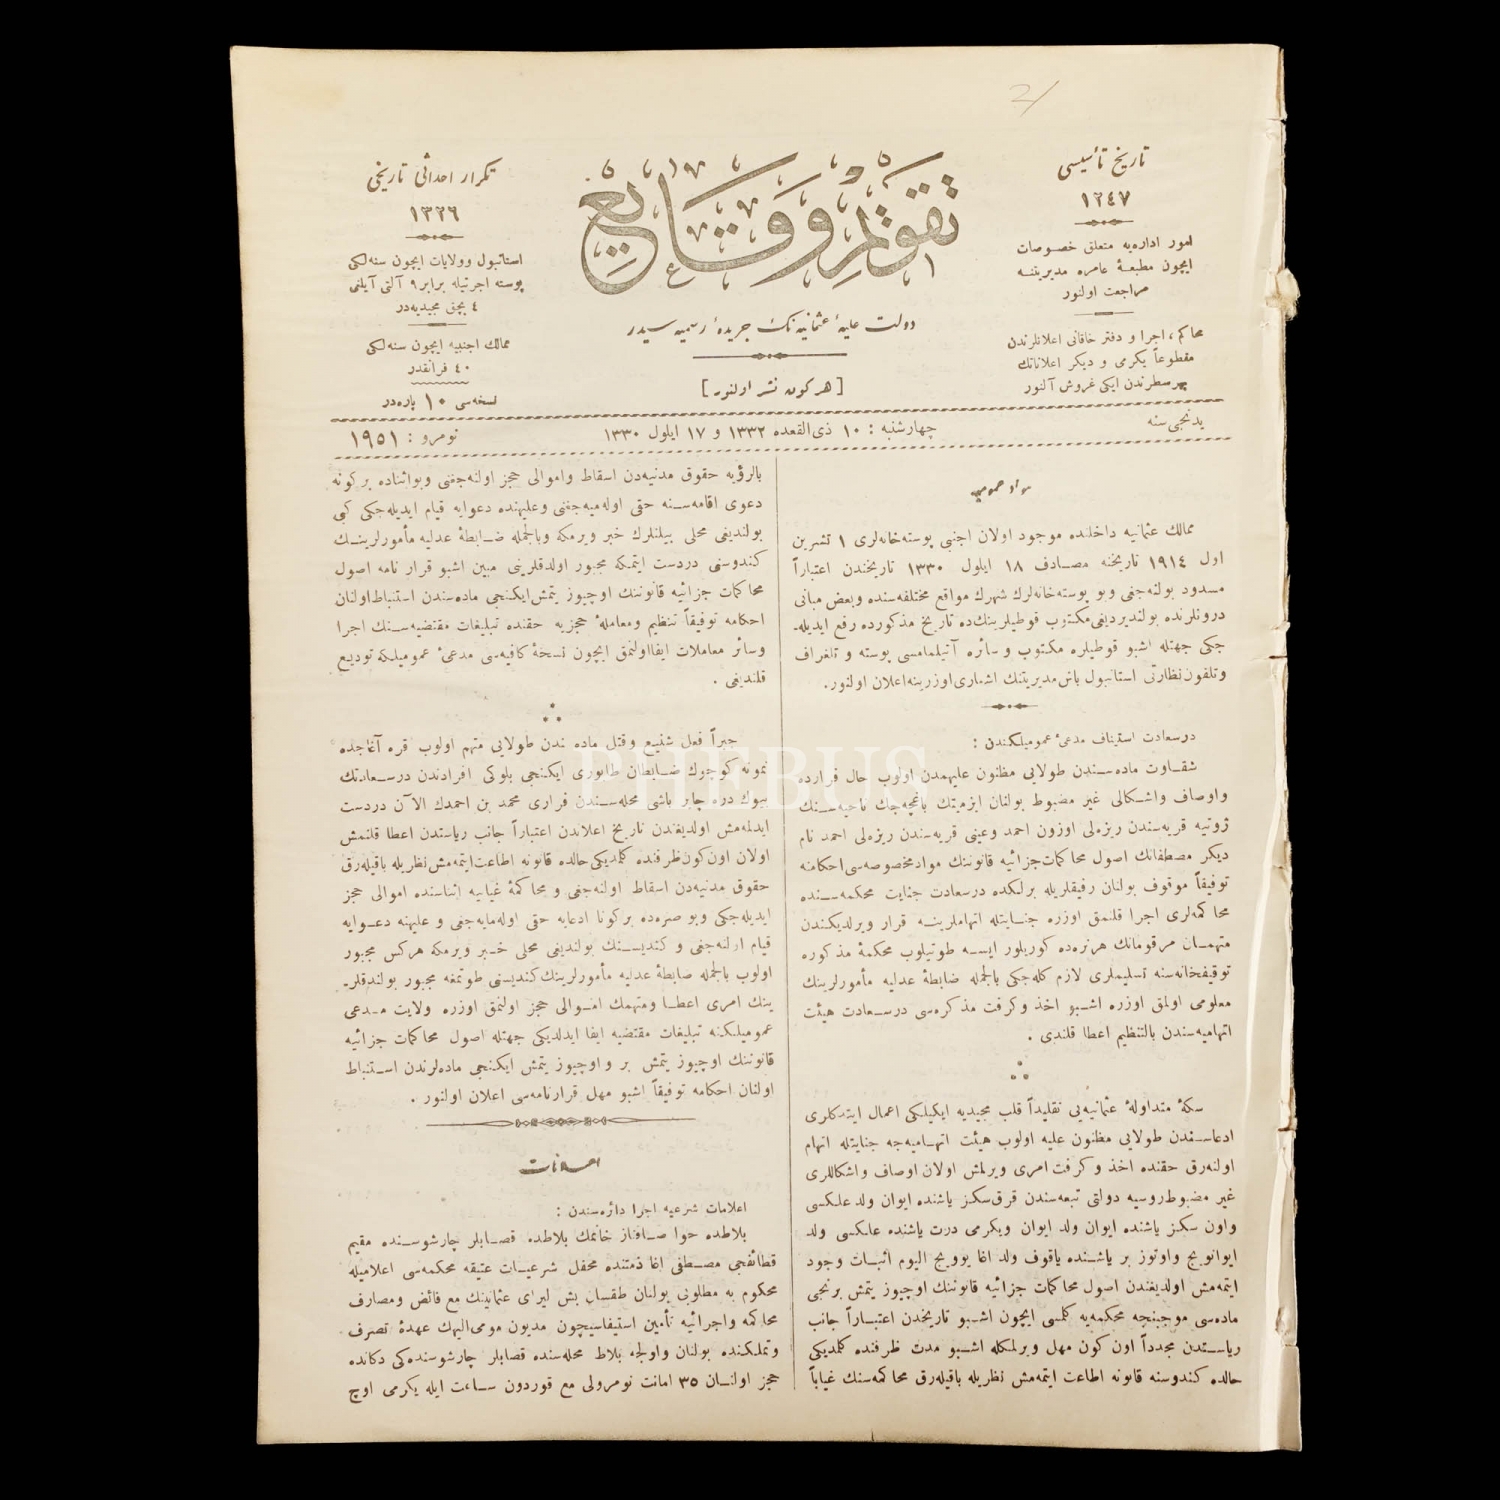 2/
تاريخ تأسيسى
١٢٤٧
امور اداره‌يه متعلق خصوصات
ايچون مطبعهٔ عامره مديريتنه
مراجعت اولنور
محاكم، اجرا و دفتر خاقانى اعلانلرندن
مقطوعاً يكرمى و ديكر اعلاناتك
بهر سطرندن ايكى غروش آلنور
تقويم وقايع
دولت عليهٔ عثمانيه‌نك جريدهٔ رسميه سيدر
[هر كون نشر اولنور]
تكرار احداثى تاريخى
١٣٢٦
استانبول وولايات ايچون سنه‌لكى
پوسته اجرتيله برابر ٩ آلتى آيلغى
٤ بچق مجيديه‌در
ممالك اجنبيه ايچون سنه‌لكى
٤٠ فرانقدر
نسخه‌سى ١٠ پاره‌در
يدنجى سنه
چهارشنبه : ١٠ ذى القعده ١٣٣٢ و ١٧ ايلول ١٣٣٠
نومرو : ١٩٥١
مواد عموميه
ممالك عثمانيه داخلنده موجود اولان اجنبى پوسته‌خانه‌لرى ١ تشرين
اول ١٩١٤ تاريخنه مصادف ١٨ ايلول ١٣٣٠ تاريخندن اعتباراً
مسدود بولنه‌جغى وبو پوسته‌خانه‌لرك شهرك مواقع مختلفه‌سنده وبعض مبانى
درونلرنده بولنديرديغى مكتوب قوطيلرينك‌ده تاريخ مذكورده رفع ايديله‌-
جكى جهتله اشبو قوطيلره مكتوب و سائره آتيلمامسى پوسته و تلغراف
وتلفون نظارتى استانبول باش مديريتنك اشعارى اوزرينه اعلان اولنور.
درسعادت استيناف مدعىٔ عموميلكندن :
شقاوت ماده‌سندن طولايى مظنون عليهمدن اولوب حال فرارده
واوصاف واشكالى غير مضبوط بولنان ازميتك باغچه‌جك ناحيه‌سنك
ژونيه قريه‌سندن ريزه‌لى اوزون احمد وعينى قريه‌سندن ريزه‌لى احمد نام
ديكر مصطفانك اصول محاكمات‌جزائيه قانوننك مواد مخصوصه‌سى احكامنه
توفيقاً موقوف بولنان رفيقلريله برلكده درسعادت جنايت محكمه‌سنده
محاكمه‌لرى اجرا قلنمق اوزره جنايتله اتهاملرينه قرار ويرلديكندن
متهمان مرقومانك هرنره‌ده كوريلور ايسه طوتيلوب محكمهٔ مذكوره
توقيفخانه‌سنه تسليملرى لازم كله‌جكى بالجمله ضابطهٔ عدليه مأمورلرينك
معلومى اولمق اوزره اشبو اخذ وكرفت مذكره‌سى درسعادت هيئت
اتهاميه‌سندن بالتنظيم اعطا قلندى .
سكهٔ متداولهٔ عثمانيه‌يى تقليداً قلب مجيديه ايكيلكى اعمال ايتدكلرى
ادعاسندن طولايى مظنون عليه اولوب هيئت اتهاميه‌جه جنايتله اتهام
اولنه‌رق حقنده اخذ وكرفت امرى ويرلمش اولان اوصاف واشكاللرى
غير مضبوط روسيه دولتى تبعه‌سندن قرق سكز ياشنده ايوان ولد علكسى
واون سكز ياشنده ايوان ولد ايوان ويكرمى درت ياشنده علكسى ولد
ايوانويج واوتوز بر ياشنده ياقوف ولد اغا يوويج اليوم اثبات وجود
ايتمه‌مش اولديغندن اصول محاكمات جزائيه قانوننك اوچيوز يتمش برنجى
ماده‌سى موجبنجه محكمه‌يه كلمسى ايچون اشبو تاريخدن اعتباراً جانب
رياستدن مجدداً اون كون مهل ويرلمكله اشبو مدت ظرفنده كلمديكى
حالده كندوسنه قانونه اطاعت ايتمه‌مش نظريله باقيله‌رق محاكمه‌سنك غياباً
بالرؤيه حقوق مدنيه‌دن اسقاط واموالى حجز اولنه‌جغنى وبواثناده بركونه
دعوى اقامه‌سنه حقى اوله‌ميه‌جغنى وعليهنده دعوايه قيام ايديله‌جكى كبى
بولنديغى محلى بيلنلرك خبر ويرمكه وبالجمله ضابطهٔ عدليه مأمورلرينك
كندوسنى دردست ايتمكه مجبور اولدقلرينى مبين اشبو قرار نامه اصول
محاكمات جزائيه قانوننك اوچيوز يتمش‌ايكنجى ماده‌سندن استنباط‌اولنان
احكامه توفيقاً تنظيم ومعاملهٔ حجزيه حقنده تبليغات مقتضيه‌سنك اجرا
وسائر معاملات ايفااولنمق ايچون نسخهٔ كافيه‌سى مدعىٔ عموميلكه توديع
قلنديغى .
جبراً فعل شنيع وقتل ماده ندن طولايى متهم اولوب قره آغاجده
نمونه كوچوك ضابطان طابورى ايكنجى بلوكى افرادندن درسعادتك
بيوك دره چاير باشى محله‌سندن فرارى محمد بن احمدك الآن دردست
ايدلمه‌مش اولديغندن تاريخ اعلاندن اعتباراً جانب رياستدن اعطا قلنمش
اولان اون‌كون‌ظرفنده كلمديكى‌حالده قانونه اطاعت‌ايتمه‌مش‌نظريله باقيله‌رق
حقوق مدنيه‌دن اسقاط اولنه‌جغى و محاكمهٔ غيابيه اثناسنده اموالى حجز
ايديله‌جكى وبو صره‌ده بركونا ادعايه حقى اوله‌مايه‌جغى و عليهنه دعوايه
قيام اولنه‌جغى و كنديسنك بولنديغى محلى خبر ويرمكه هركس مجبور
اولوب بالجمله ضابطهٔ عدليه مأمورلرينك‌كنديسنى طوتمغه مجبور بولندقلر-
ينك امرى اعطا ومتهمك اموالى حجز اولنمق اوزره ولايت مدعى
عموميلكنه تبليغات مقتضيه ايفا ايدلديكى جهتله اصول محاكمات جزائيه
قانوننك اوچيوز يتمش بر و اوچيوز يتمش ايكنجى ماده‌لرندن استنباط
اولنان احكامه توفيقاً اشبو مهل قرارنامه‌سى اعلان اولنور .
اعلانات
اعلامات شرعيه اجرا دائره‌سندن :
بلاطده حوا صافناز خانمك بلاطده قصابلر چارشوسنده مقيم
قطائفجى مصطفى اغا ذمتنده محفل شرعيات عتيقه محكمه‌سى اعلاميله
محكوم به مطلوبى بولنان طقسان بش ليراى عثمانينك مع فائض ومصارف
محاكمه واجرائيه تأمين استيفاسيچون مديون مومى‌اليهك عهدهٔ تصرف
وتملكنده بولنان واولجه بلاط محله‌سنده قصابلر چارشوسنده‌كى دكانده
حجز اولنان ٣٥ امانت نومرولى مع قوردون ساعت ايله يكرمى اوچ
PHEBUS